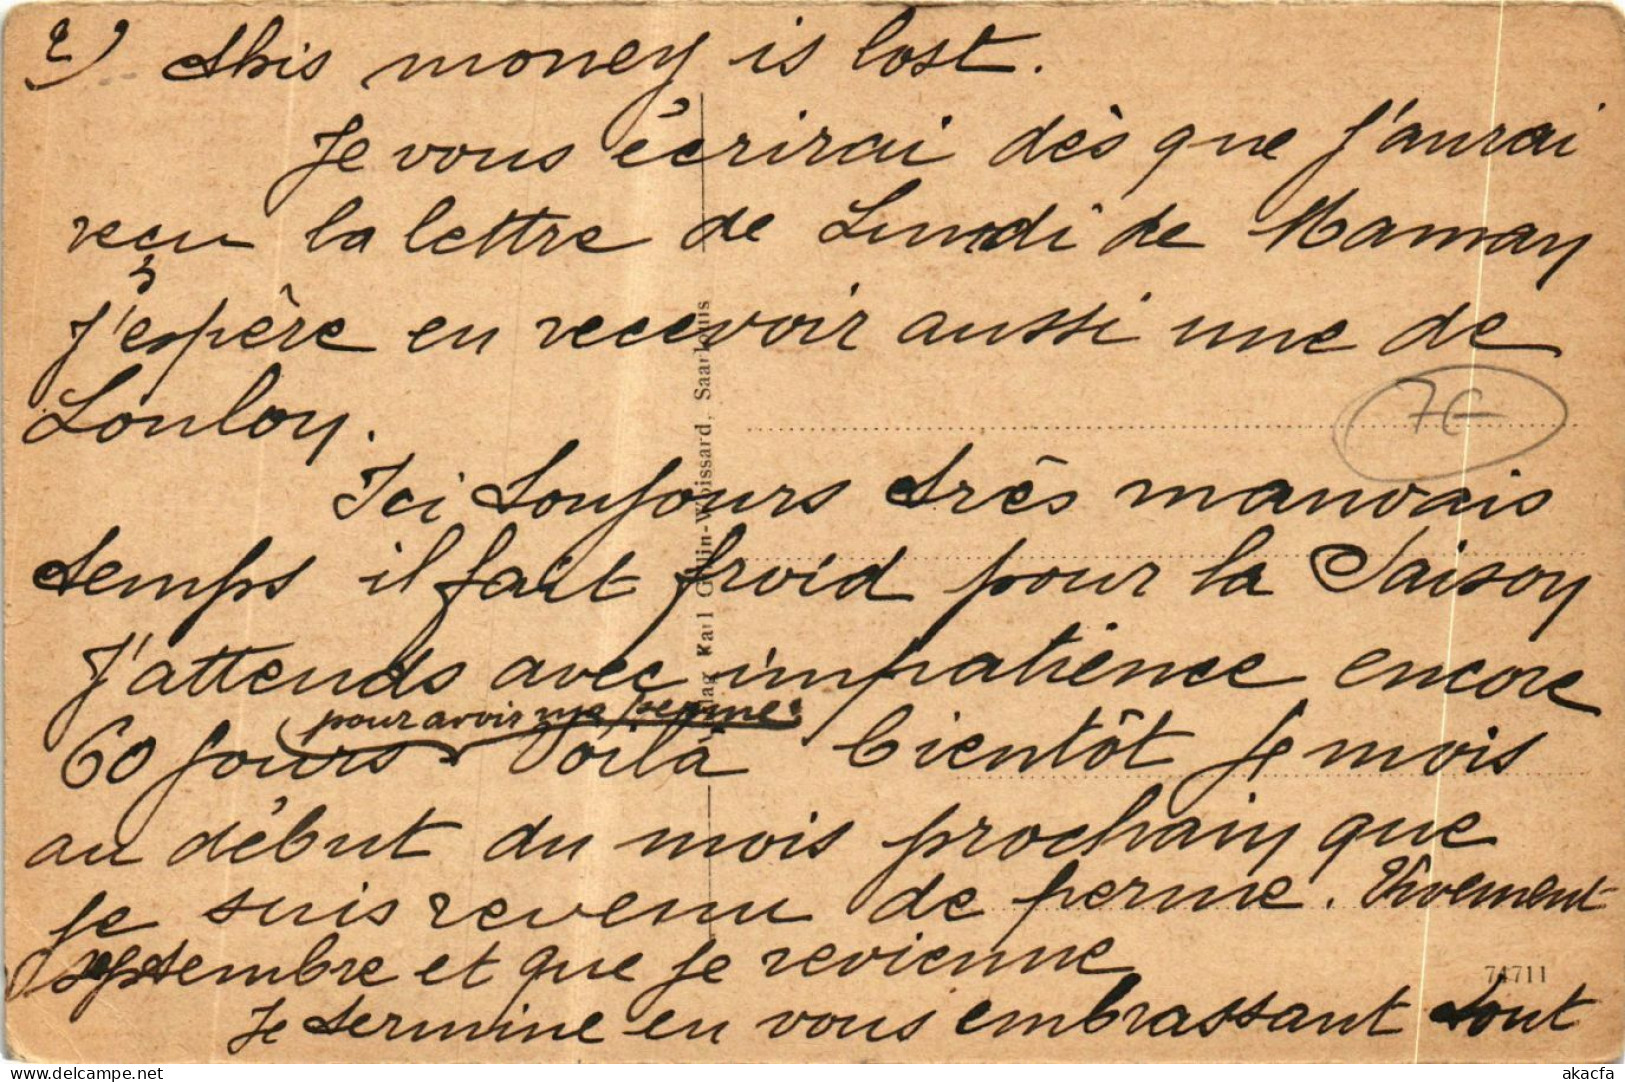 2) this money is lost.
Je vous écrirai dès que j'aurai
reçu la lettre de Lundi de Maman
J'espère en recevoir aussi une de
Loulou.
Ici toujours très mauvais
temps il fait froid pour la Saison
J'attends avec impatience encore
60 jours (pour avoir ma perme) Voilà bientôt 1 mois
au début du mois prochain que
je suis revenu de perme. Vivement
septembre et que je revienne
Je termine en vous embrassant tout
Verlag Karl Collin-Wbissard, Saarlouis
7€
74711
delcampe.net
akacfa